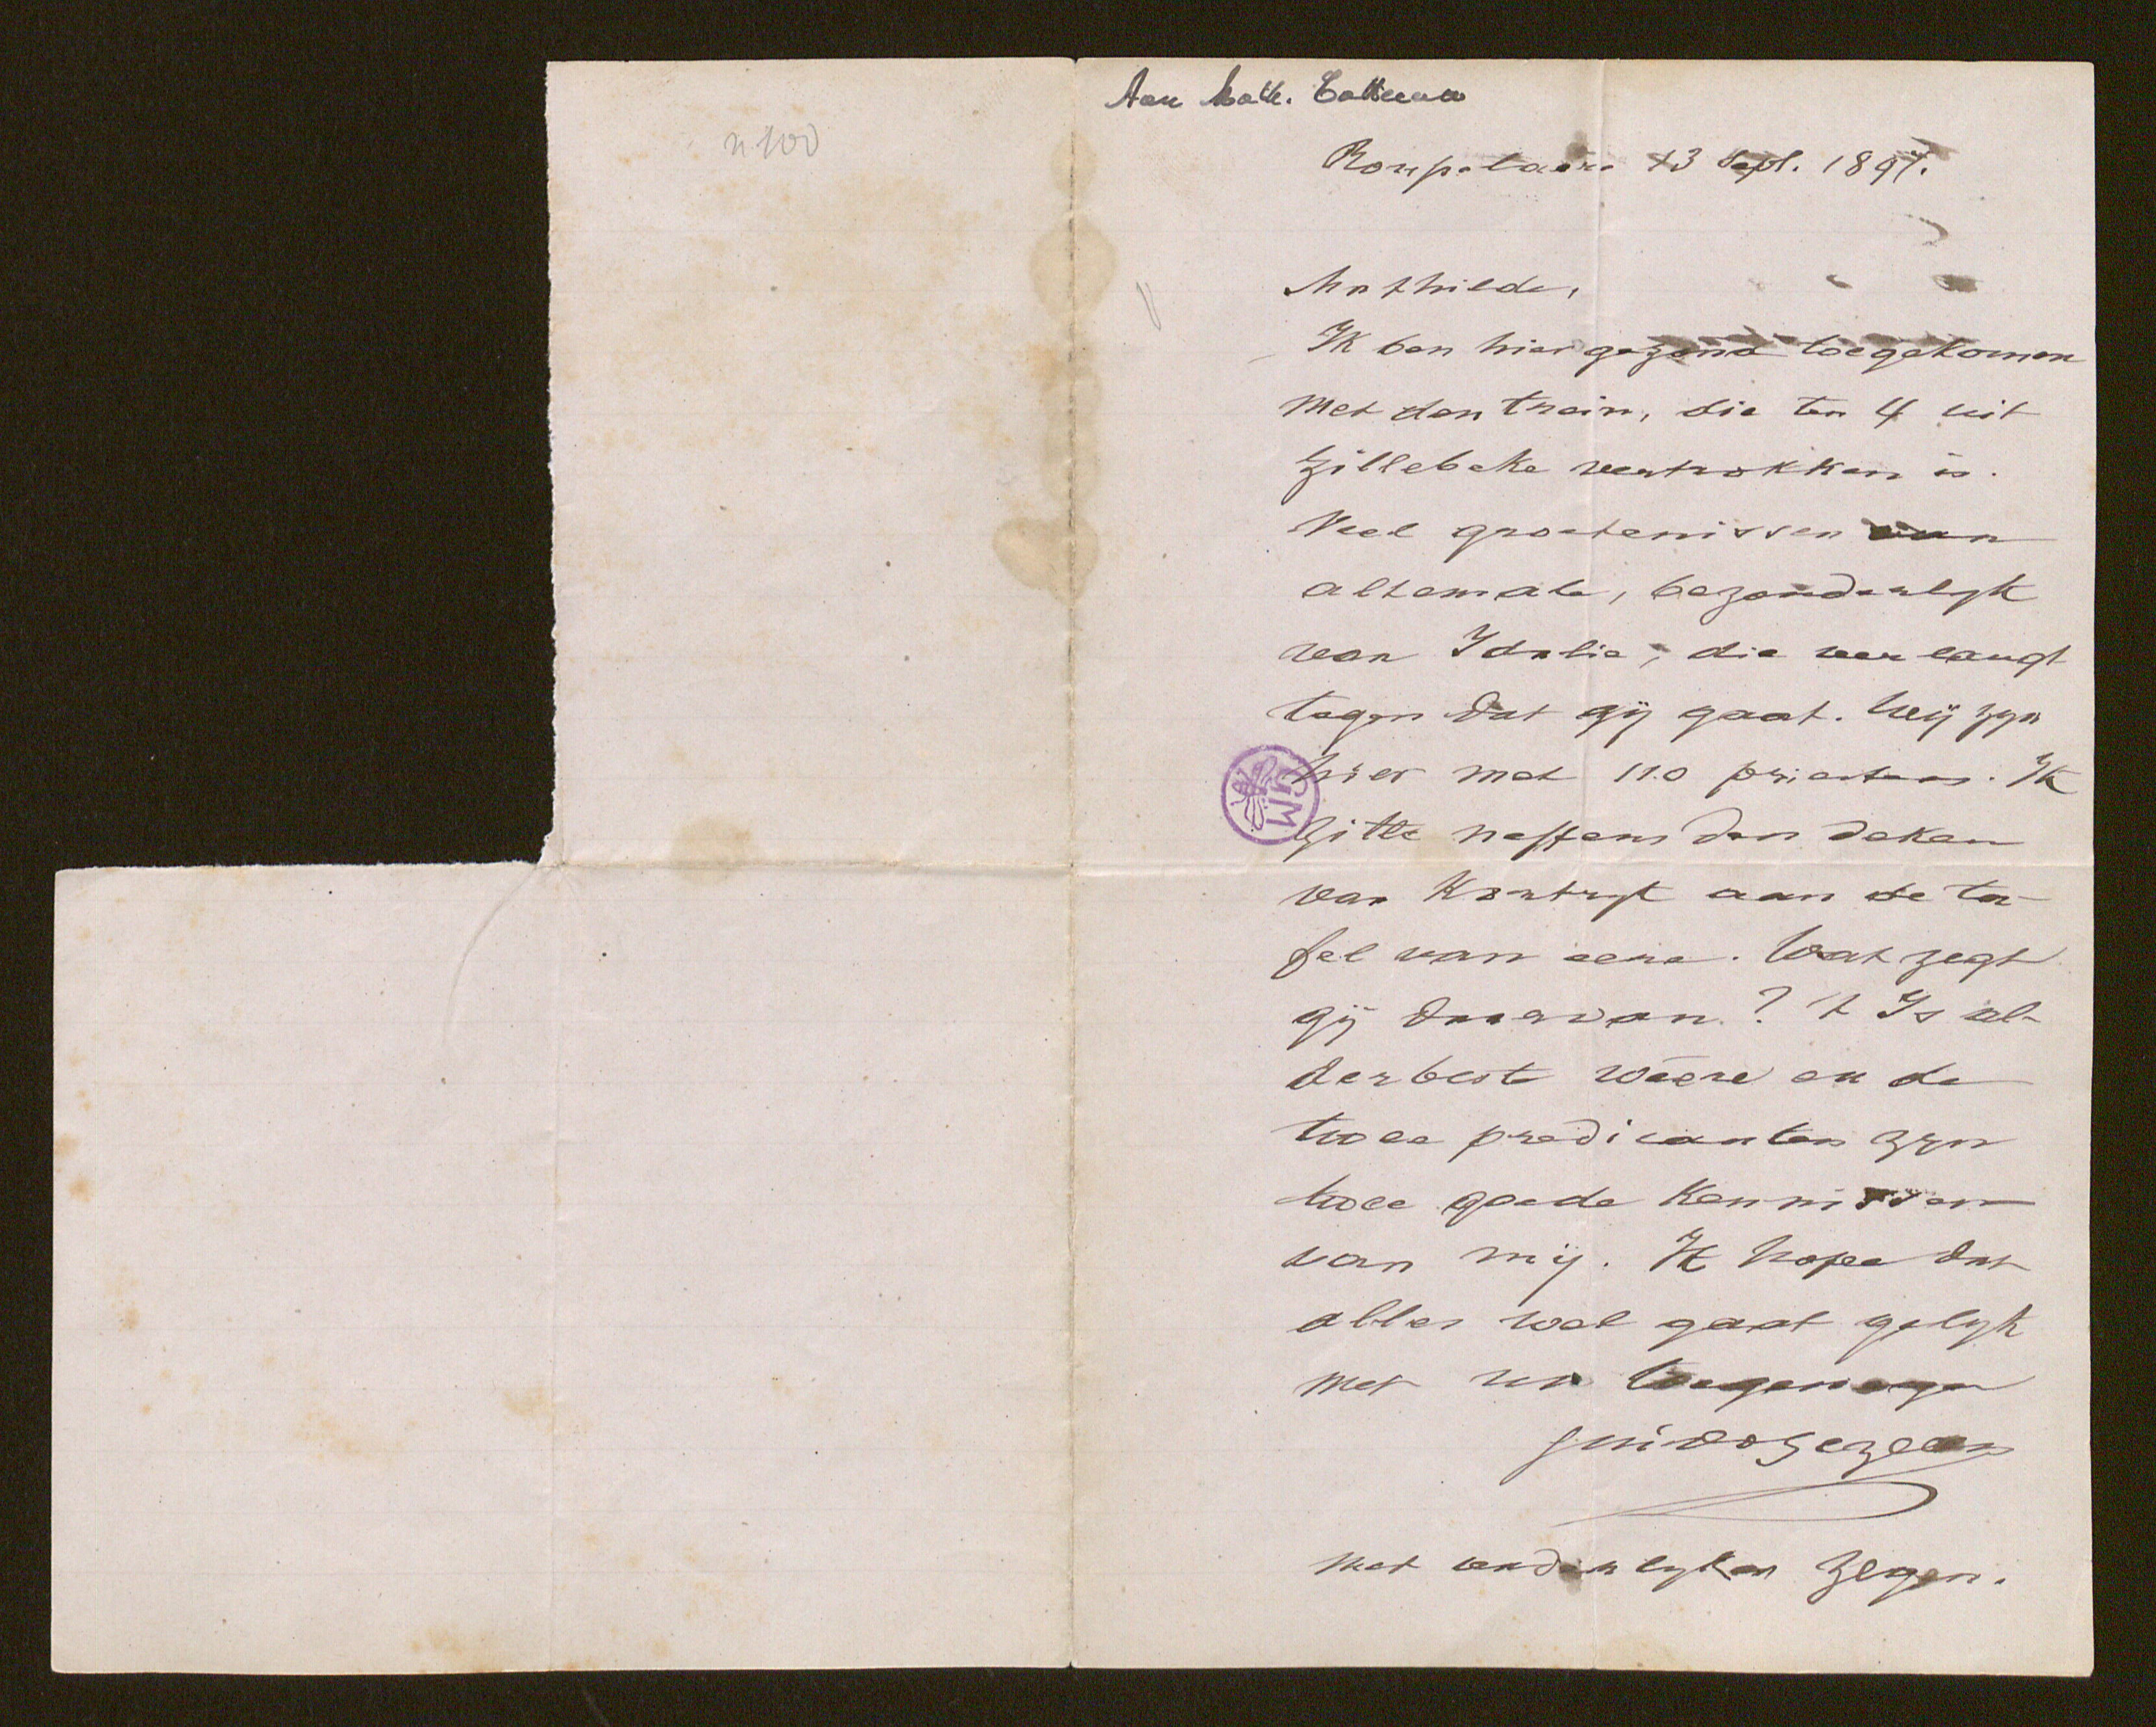 n 100
Aan Math.
Rouselaere 13 Sept. 1897.
Mathilde,
Ik ben hier gezond toegekomen
met den trein, die ten 4 uit
Zillebeke vertrokken is.
Veel groetenissen van
altemale, bezonderlyk
van Idalie, die verlangt
tegen dat gij gaat. Wij zyn
hier met 110 priesters. Ik
zitte neffens den deken
van Kortryk aan de ta-
fel van eere. Wat zegt
gij daarvan? 't Is al-
derbeste weere en de
twee predicanten zyn
twee goede kennissen
van mij. Ik hope dat
alles wel gaat gelyk
met uw toegenegen
Guido Gezelle
met vaderlyken zegen.
GM